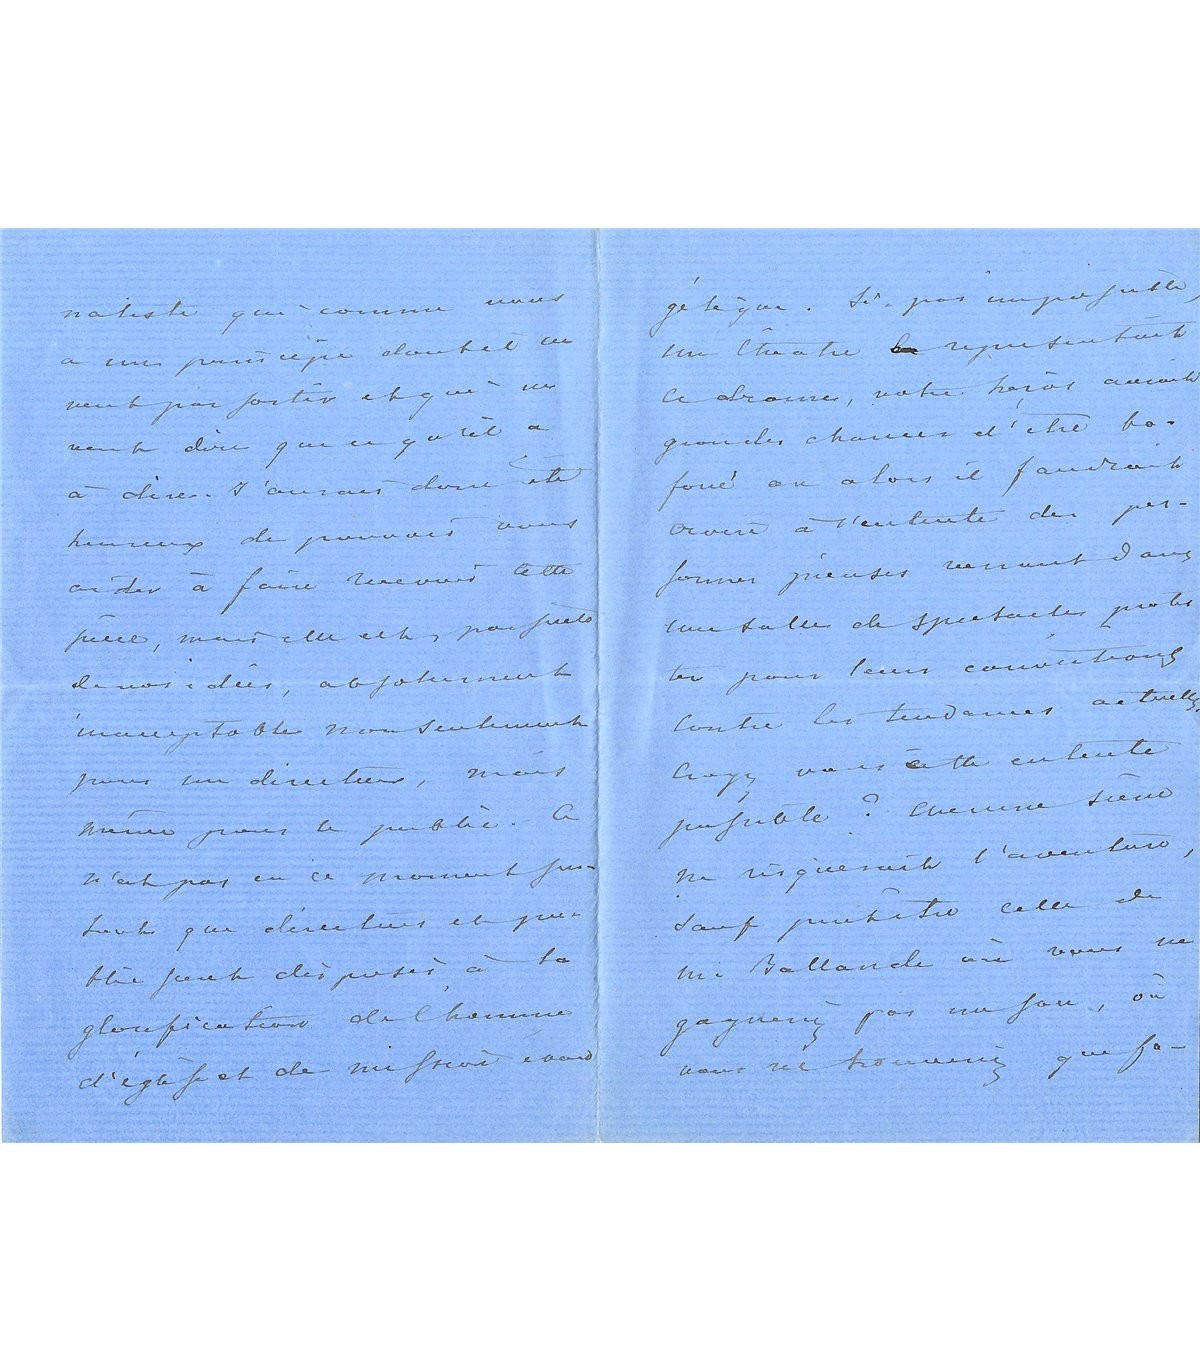 naliste qui comme vous
a un principe dont il ne
veut pas sortir et qui ne
veut dire que ce qu'il a
à dire. J'aurais donc été
heureux de pouvoir vous
aider à faire recevoir cette
pièce, mais elle est, par suite
de vos idées, absolument
inacceptable non seulement
pour un directeur, mais
même pour le public. Ce
n'est pas en ce moment sur-
tout que directeurs et pu-
blic sont disposés à la
glorification de l'homme
d'église et de mission évan
gélique. Si, par impossible,
un théâtre représentait
ce drame, votre héros aurait
grandes chances d'être ba-
foué ou alors il faudrait
croire à l'entente des per-
sonnes pieuses venant dans
une salle de spectacles protes
ter pour leurs convictions
contre les tendances actuelles.
Croyez vous cette entente
possible ? Aucune scène
ne risquerait l'aventure,
sauf peut être celle de
Mr Ballande où vous ne
gagneriez pas un sou, où
vous ne trouveriez que fa-